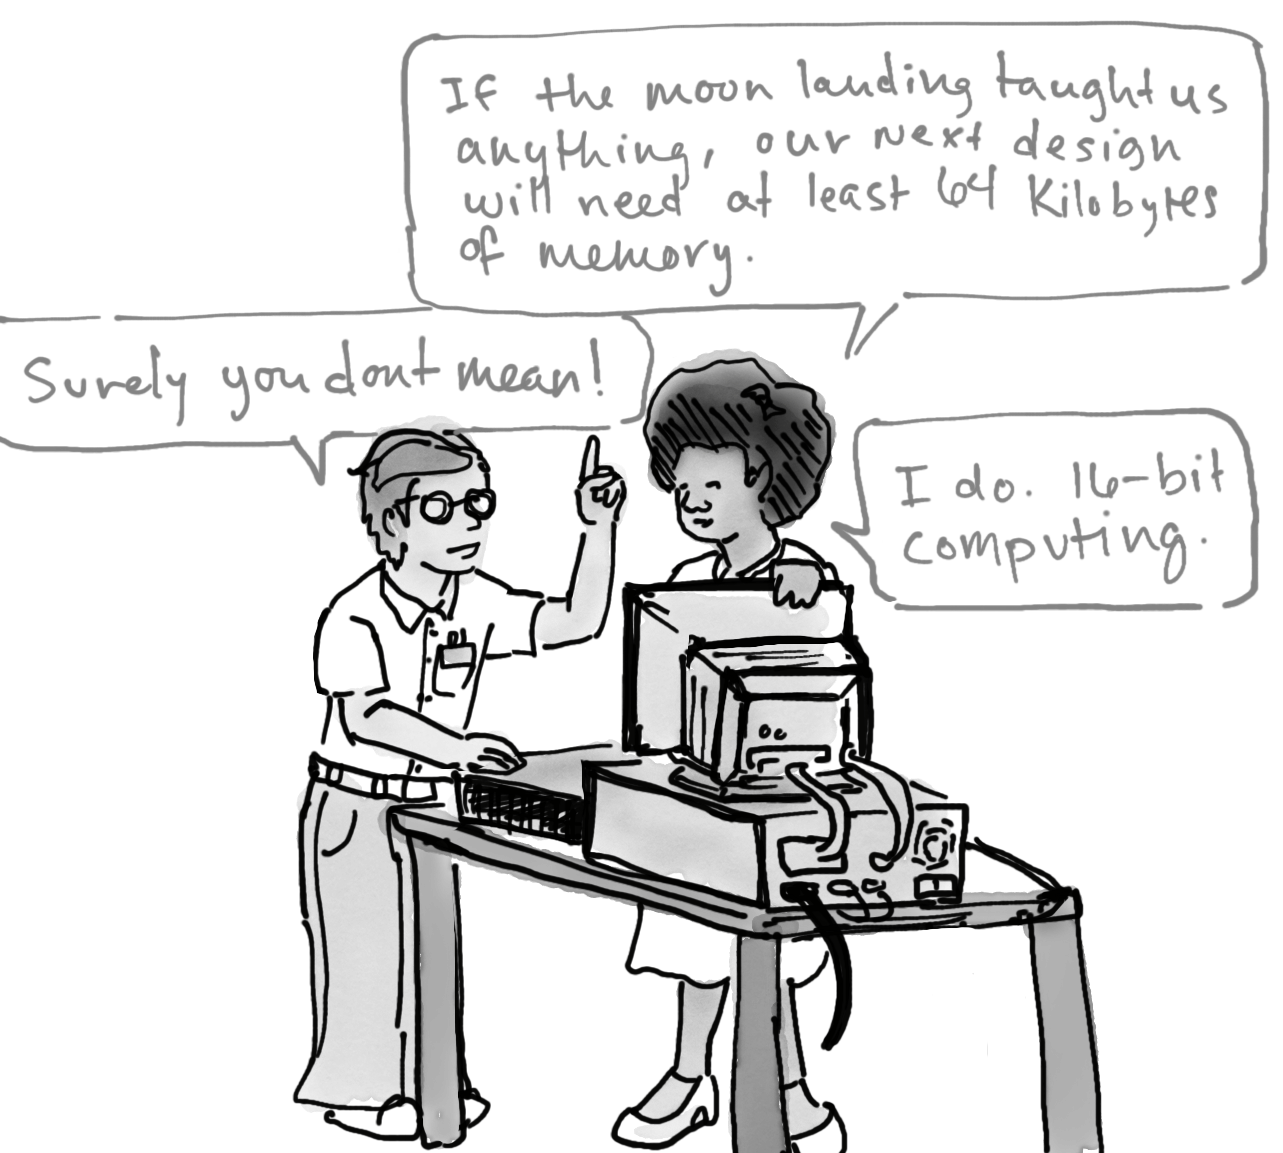 If the moon landing taught us
anything, our next design
will need at least 64 Kilobytes
of memory.
Surely you dont mean!
I do. 16-bit
computing.